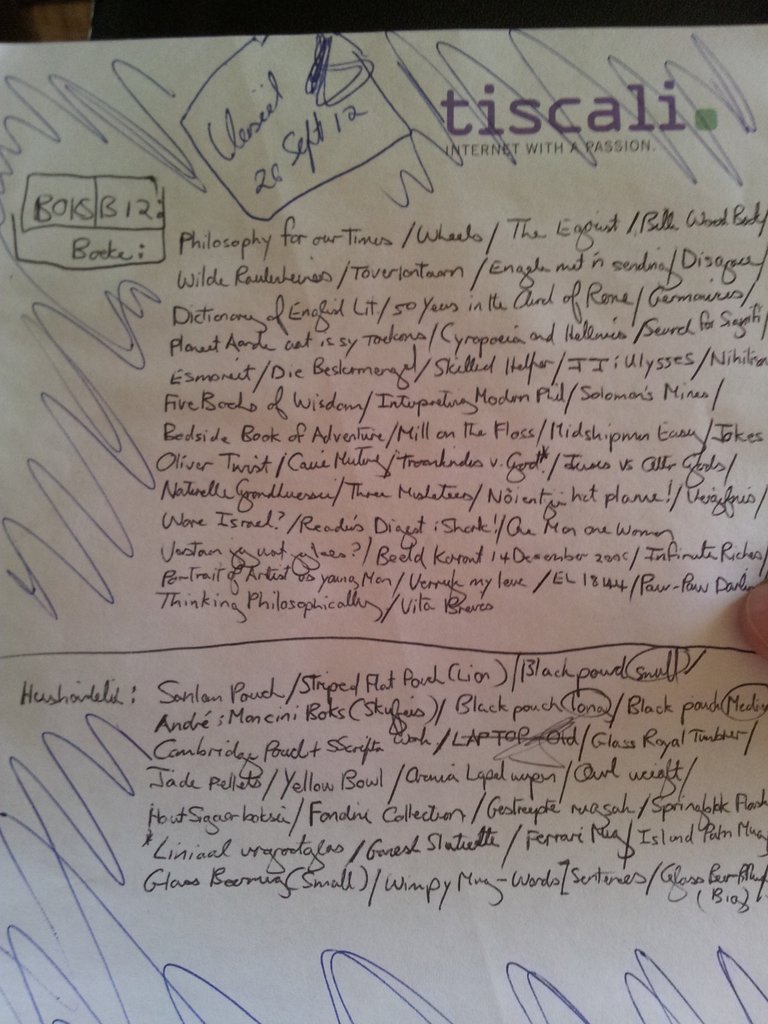 26 Sept 12
tiscali.
INTERNET WITH A PASSION.
BOKS B12:
Boeke:
Philosophy for our Times / Wheels / The Egoist /
Wilde / Disagree /
Dictionary of English Lit / 50 Years in the Church of Rome / Germanicus /
Planet Aarde / Cyropaedia and Hellenica / Search for
Esmoreit / Die Beskermengel / Skilled Helper / JJ: Ulysses /
Five Books of Wisdom / Interpreting Modern Phil / Solomon's Mines /
Bedside Book of Adventure / Mill on the Floss / Midshipman Easy / Jokes
Oliver Twist / Caine Mutiny / v. God* / Jesus vs other Gods /
Three Musketeers /
Wane Israel? / Reader's Digest: Shark! / One Man one Woman
Verstaan jy wat jy lees? / Beeld Koerant 14 Desember / Infinite Riches /
Portrait of Artist as young Man / my lewe / EL 1844 / Paw-Paw Darlin
Thinking Philosophically / Vita Brevis
Huishoudelik: Sanlam Pouch / Striped Flat Pouch (Lion) / Black pouch (small) /
André: Mancini Boks (Skyfies) / Black pouch (long) / Black pouch (Medium
Cambridge Pouch + Work / LAPTOP Old / Glass Royal Tumbler /
Jade pellets / Yellow Bowl / Lapel / Owl weight /
Hout Sigaar boksie / Fondue Collection / Gestreepte / Springbokk
* Liniaal vergrootglas / Ganesh Statuette / Ferrari Mug / Island Palm Mug
Glass Beermug (Small) / Wimpy Mug - Words / Sentences / Glass
(Big)